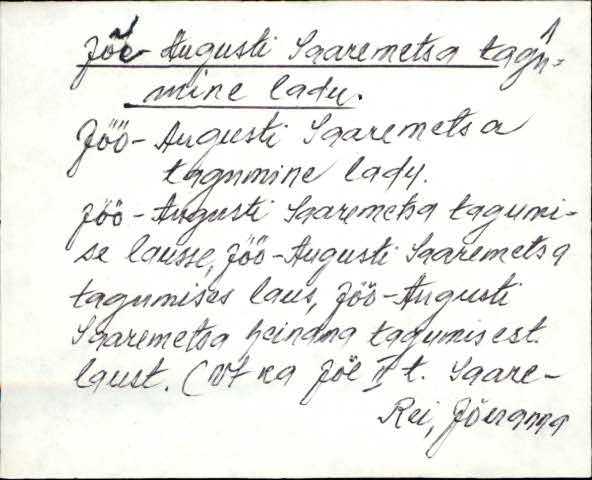 Jõe-Augusti Saaremetsa tagu- 1
mine ladu.
Jöö-Augusti Saaremetsa
tagumine ladu.
Jöö-Augusti Saaremetsa tagumi-
se lausse, Jöö-Augusti Saaremetsa
tagumises laus, Jöö-Augusti
Saaremetsa heinama tagumisest
laust. (Vt ka Jõe II t. Saare-
Rei, Jõeranna